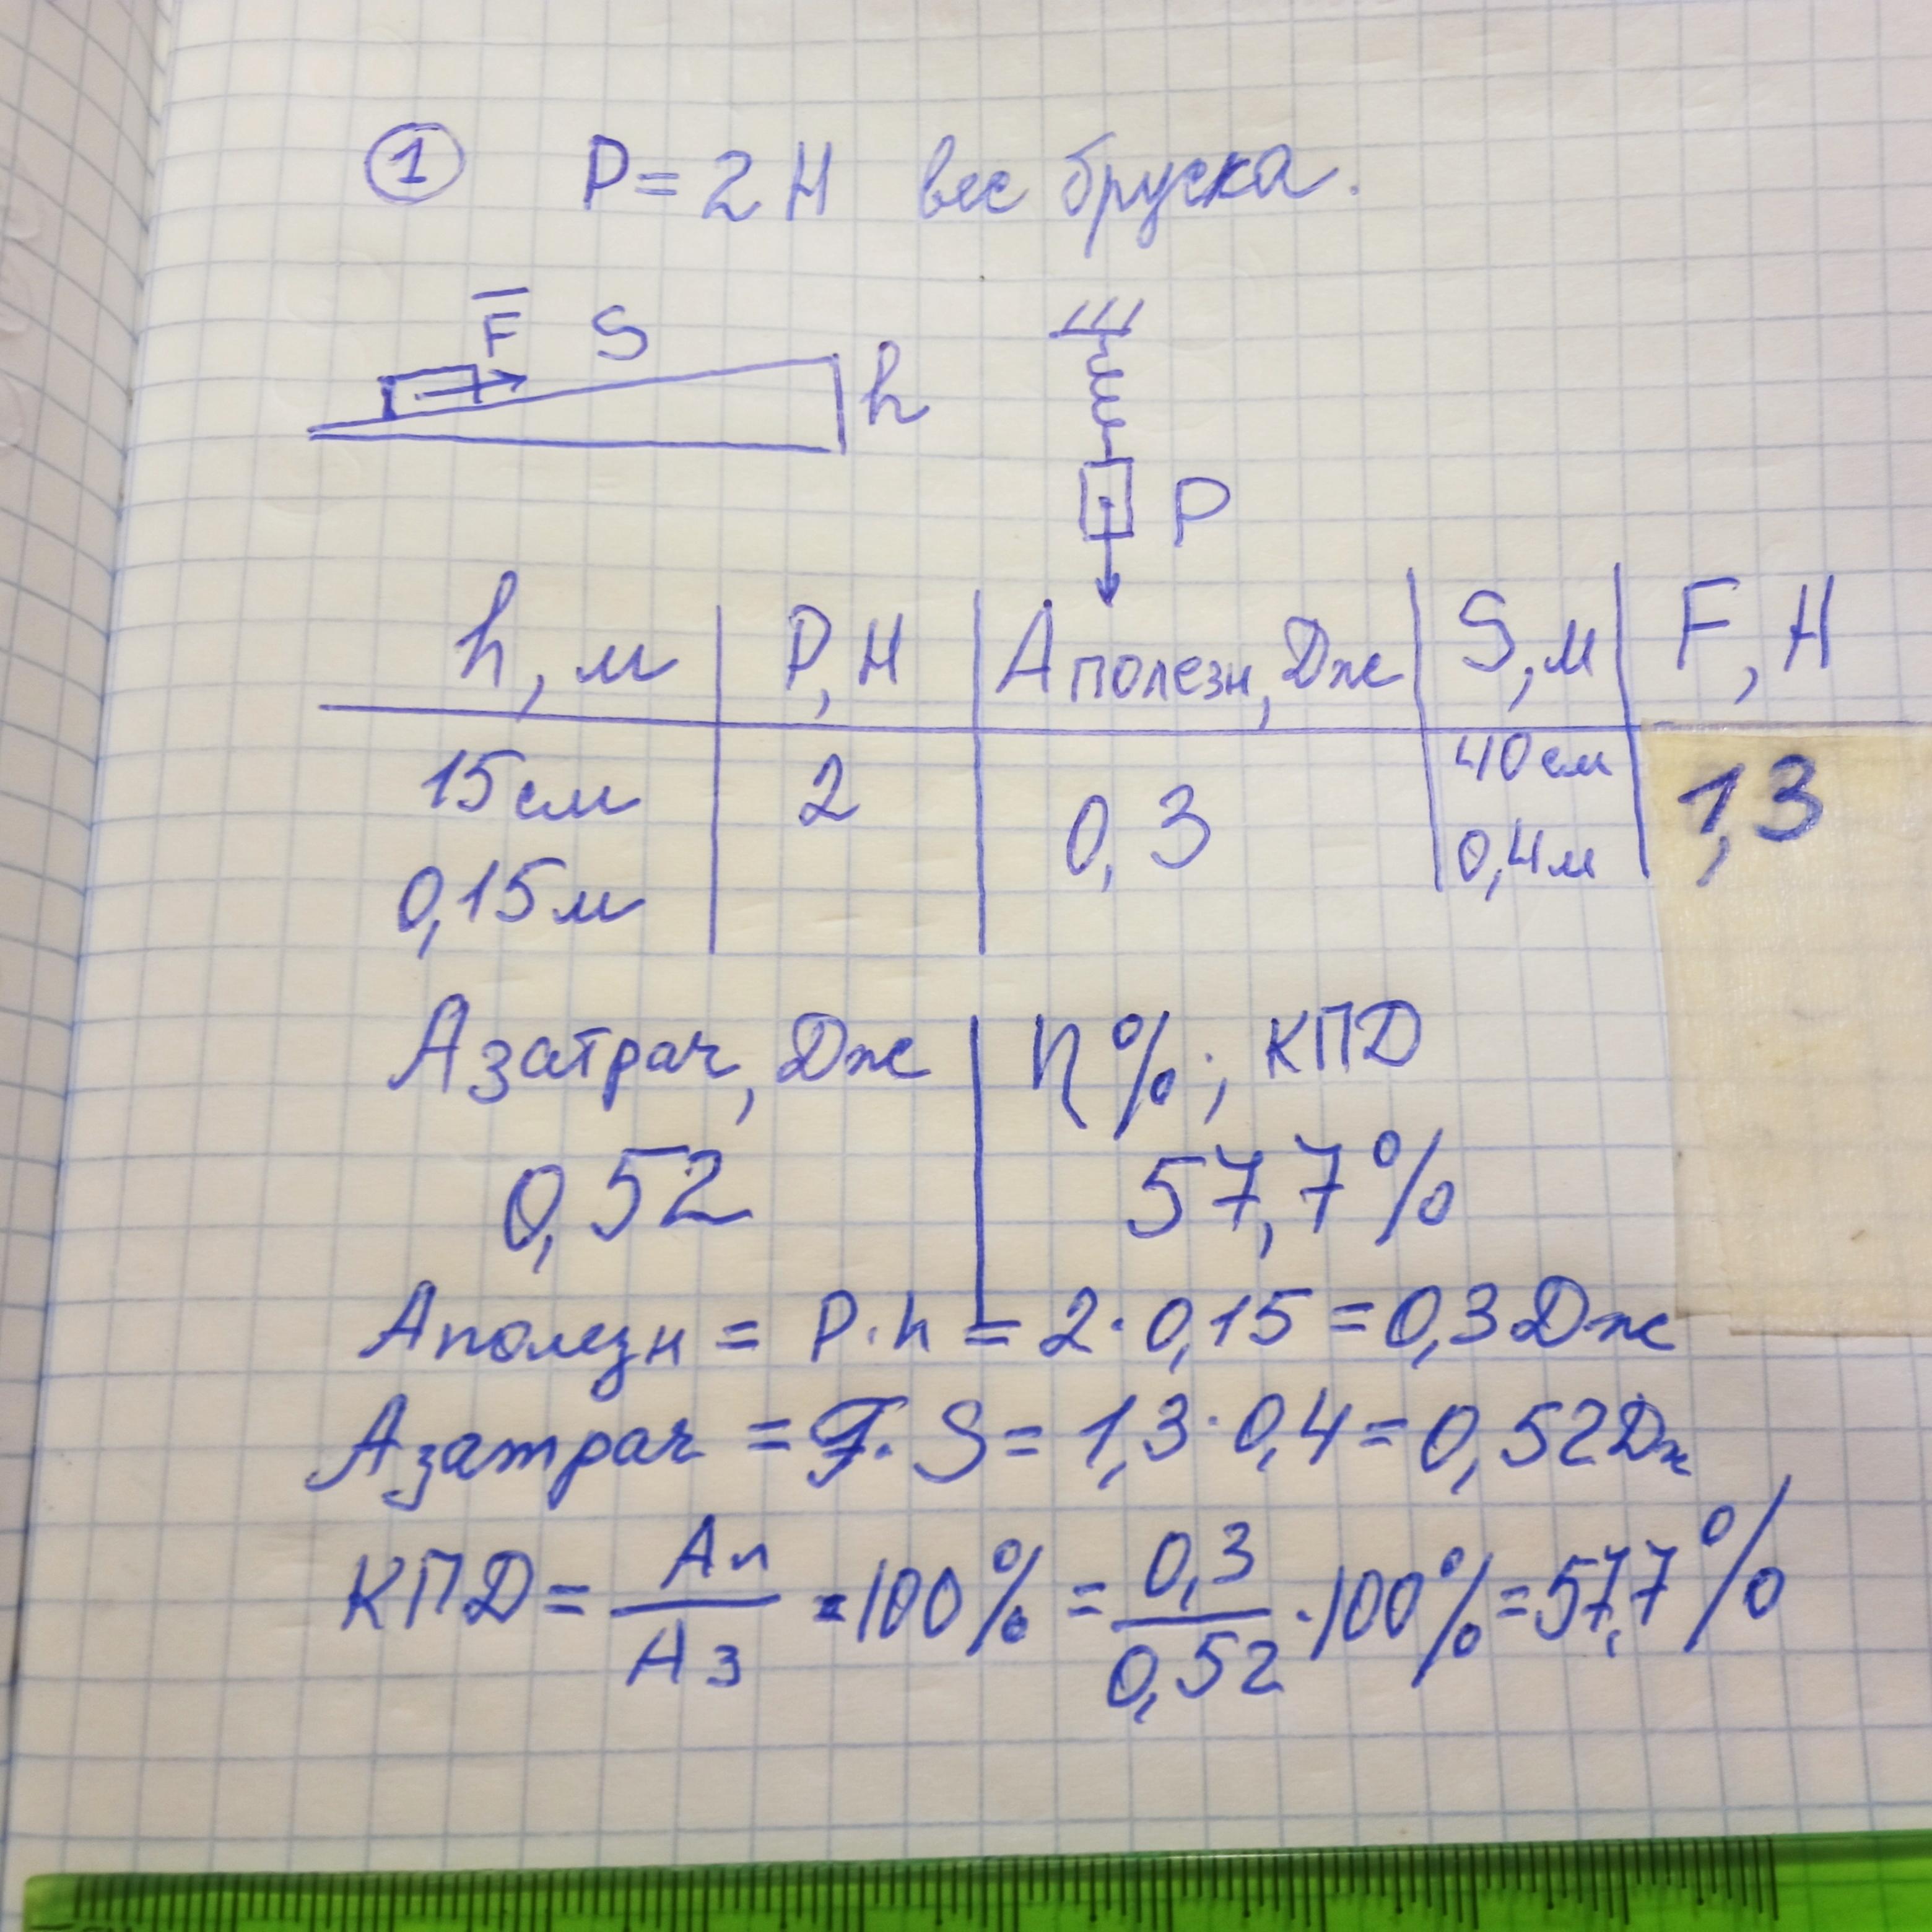 1 P = 2 Н вес бруска.
F S
h
P
h, м P, Н Aполезн, Дж S, м F, Н
15 см 2 0,3 40 см 1,3
0,15 м 0,4 м
Aзатрач, Дж η %; КПД
0,52 57,7 %
Aполезн = P · h = 2 · 0,15 = 0,3 Дж
Aзатрач = F · S = 1,3 · 0,4 = 0,52 Дж
КПД = Aп / Aз · 100 % = 0,3 / 0,52 · 100 % = 57,7 %